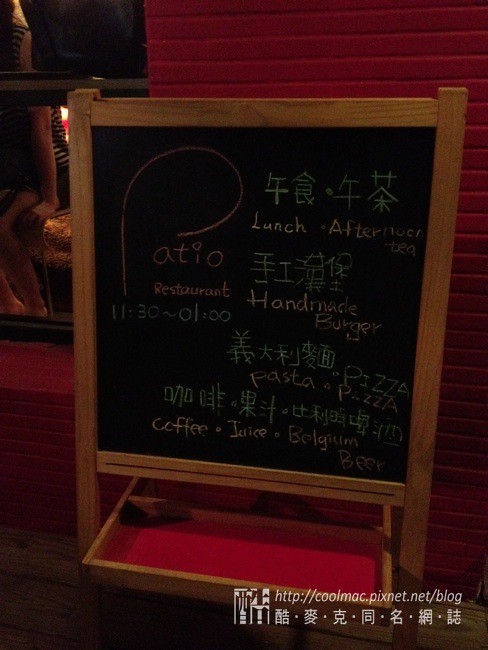 Patio
Restaurant
11:30~01:00
午食·午茶
Lunch · Afternoon
tea
手工漢堡
Handmade
Burger
義大利麵·PIZZA
pasta · PIZZA
咖啡·果汁·比利時啤酒
Coffee · Juice · Belgium
Beer
http://coolmac.pixnet.net/blog
酷·麥·克·同·名·網·誌